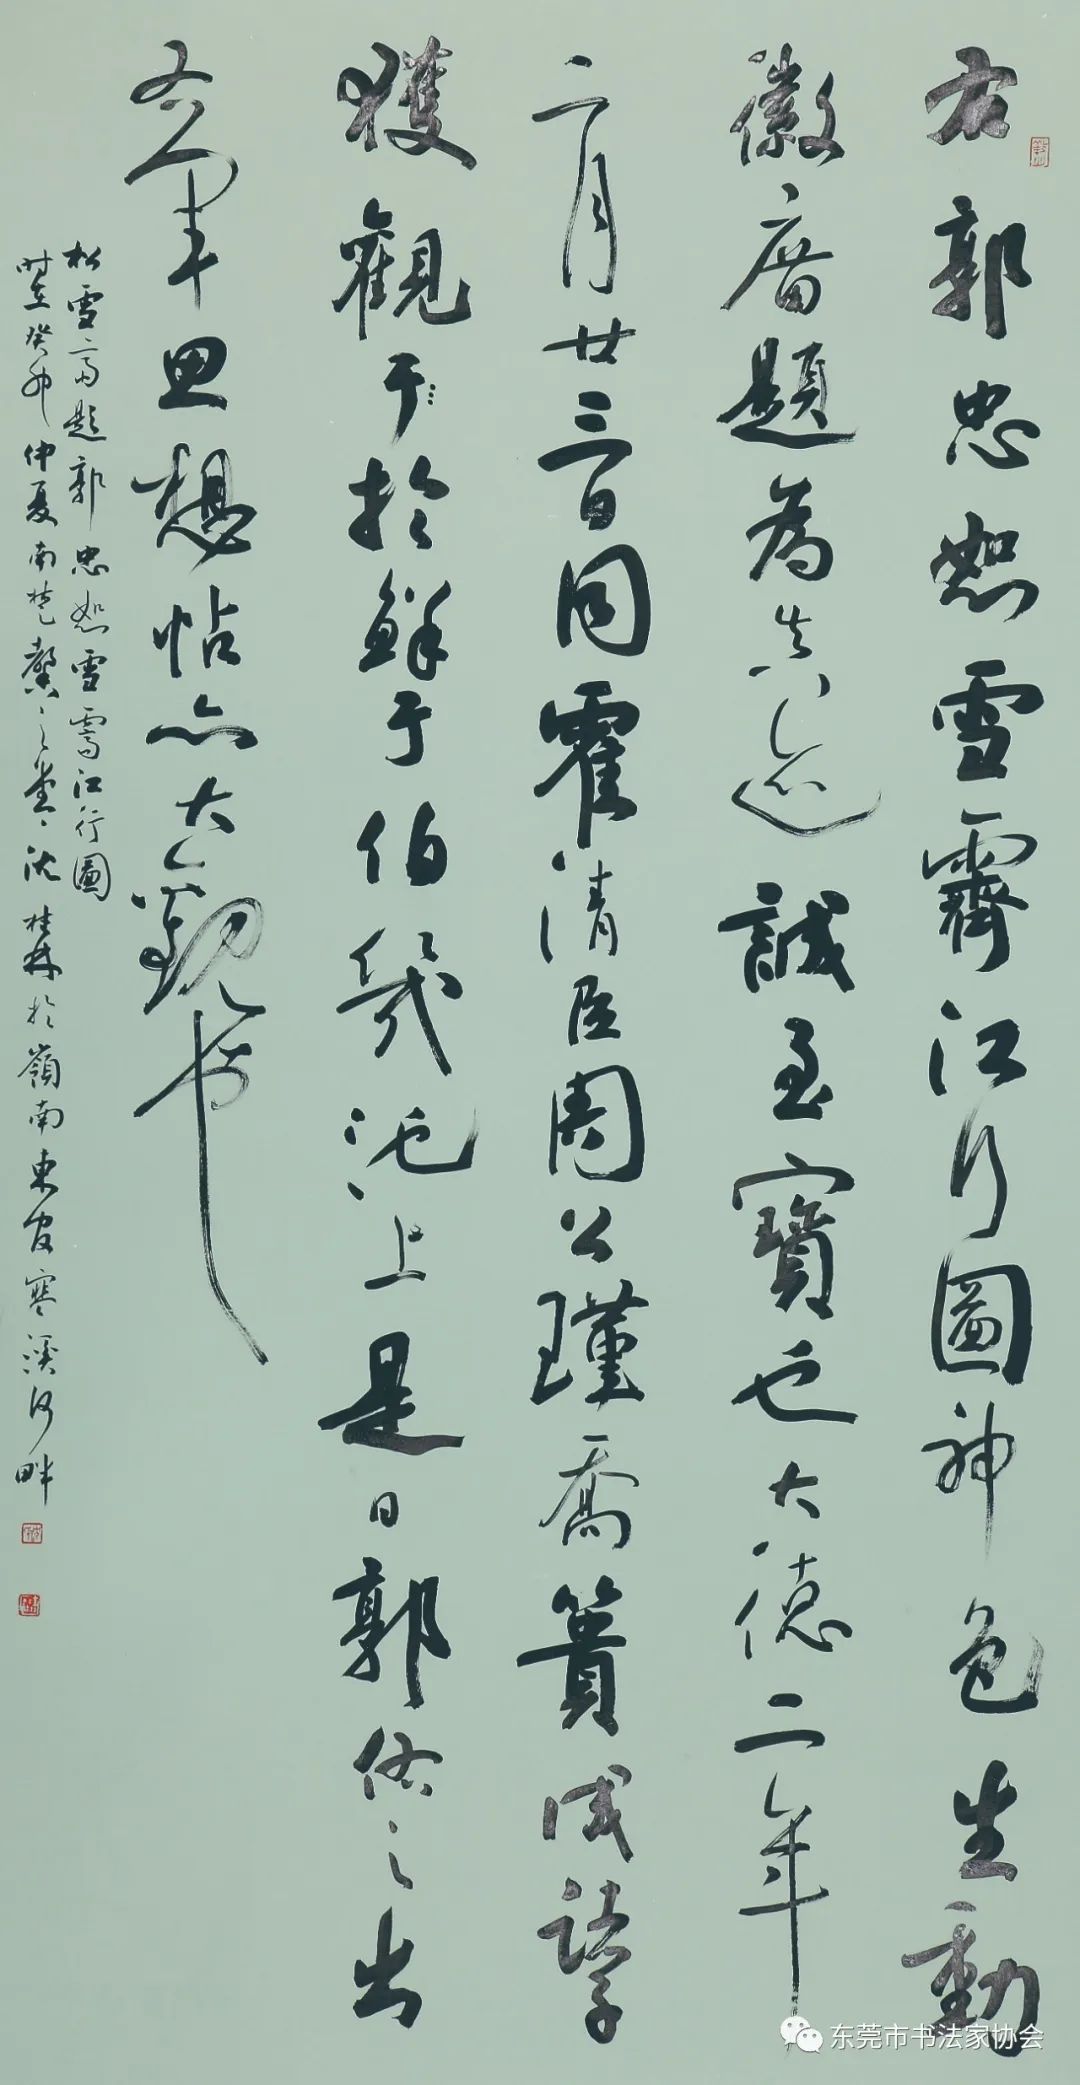 右郭忠恕雪霽江行圖神色生動
徽廟題為真迹誠至寶也大德二年
二月廿三日同霍清臣周公瑾喬簣成諸學
獲觀于於鮮于伯幾池上是日郭佑之出
右軍思想帖亦大觀也
松雪齋題郭忠恕雪霽江行圖
時在癸卯仲夏南楚馨之堂沈桂林於嶺南東官寒溪河畔
东莞市书法家协会